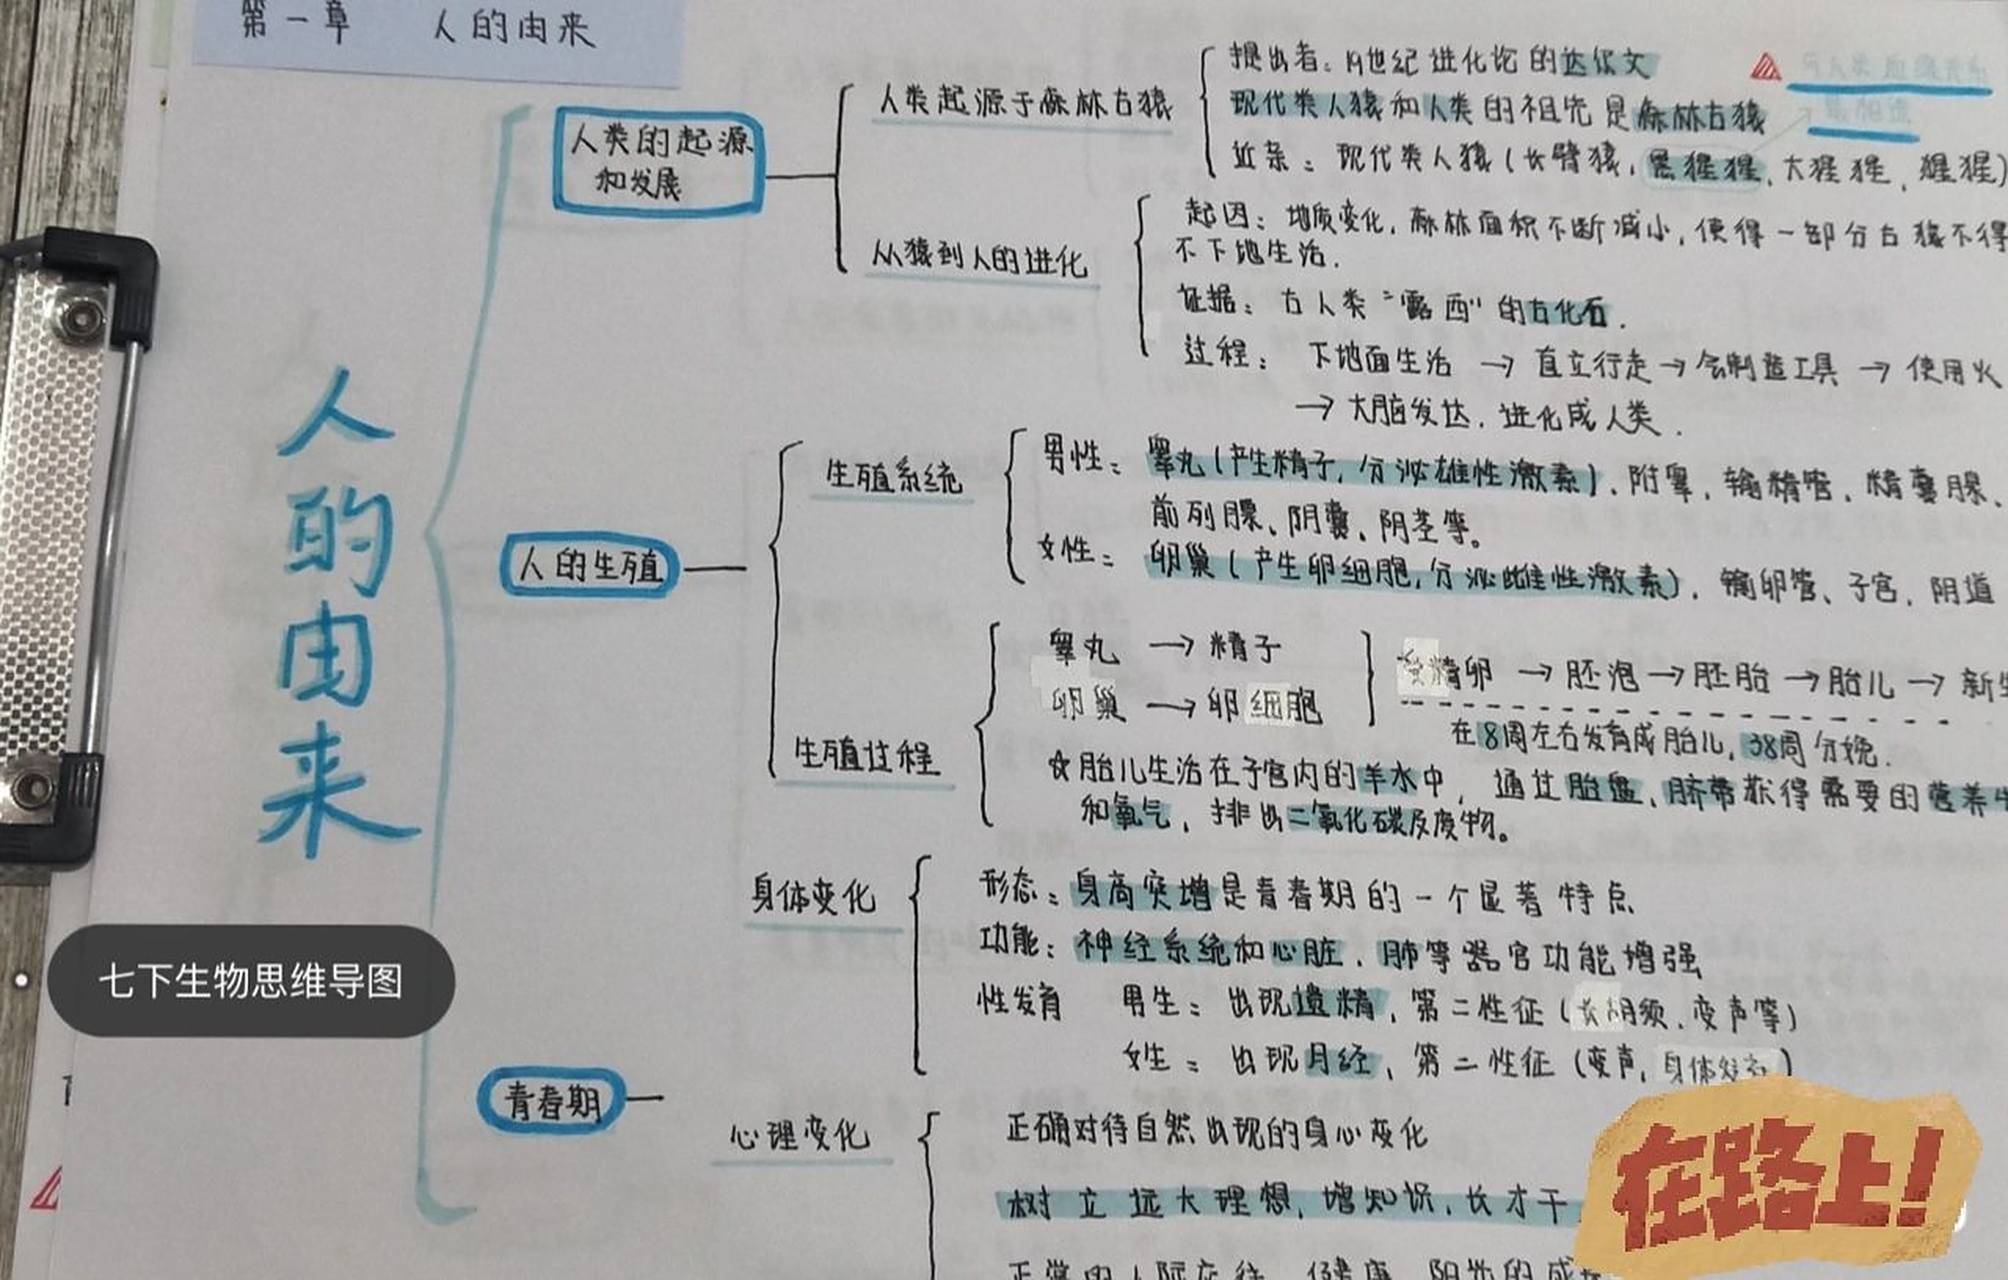 第一章 人的由来
人的由来
人类的起源
和发展
人类起源于森林古猿
提出者：19世纪进化论的达尔文
现代类人猿和人类的祖先是森林古猿
近亲：现代类人猿(长臂猿,黑猩猩,大猩猩,猩猩)
与人类血缘关系
最相近
从猿到人的进化
起因：地质变化,森林面积不断减小,使得一部分古猿不得
不下地生活.
证据：古人类“露西”的古化石.
过程：下地面生活→直立行走→会制造工具→使用火
→大脑发达.进化成人类.
人的生殖
生殖系统
男性：睾丸(产生精子,分泌雄性激素),附睾,输精管,精囊腺、
前列腺、阴囊、阴茎等。
女性：卵巢(产生卵细胞,分泌雌性激素),输卵管、子宫,阴道
生殖过程
睾丸→精子
卵巢→卵细胞
受精卵→胚泡→胚胎→胎儿→新生
在8周左右发育成胎儿,38周分娩.
☆胎儿生活在子宫内的羊水中,通过胎盘、脐带获得需要的营养
和氧气,排出二氧化碳及废物。
青春期
身体变化
形态：身高突增是青春期的一个显著特点
功能：神经系统和心脏、肺等器官功能增强
性发育 男生：出现遗精,第二性征(长胡须、变声等)
女生：出现月经,第二性征(变声,身体发育)
心理变化
正确对待自然出现的身心变化
树立远大理想,增知识,长才干
七下生物思维导图
在路上!